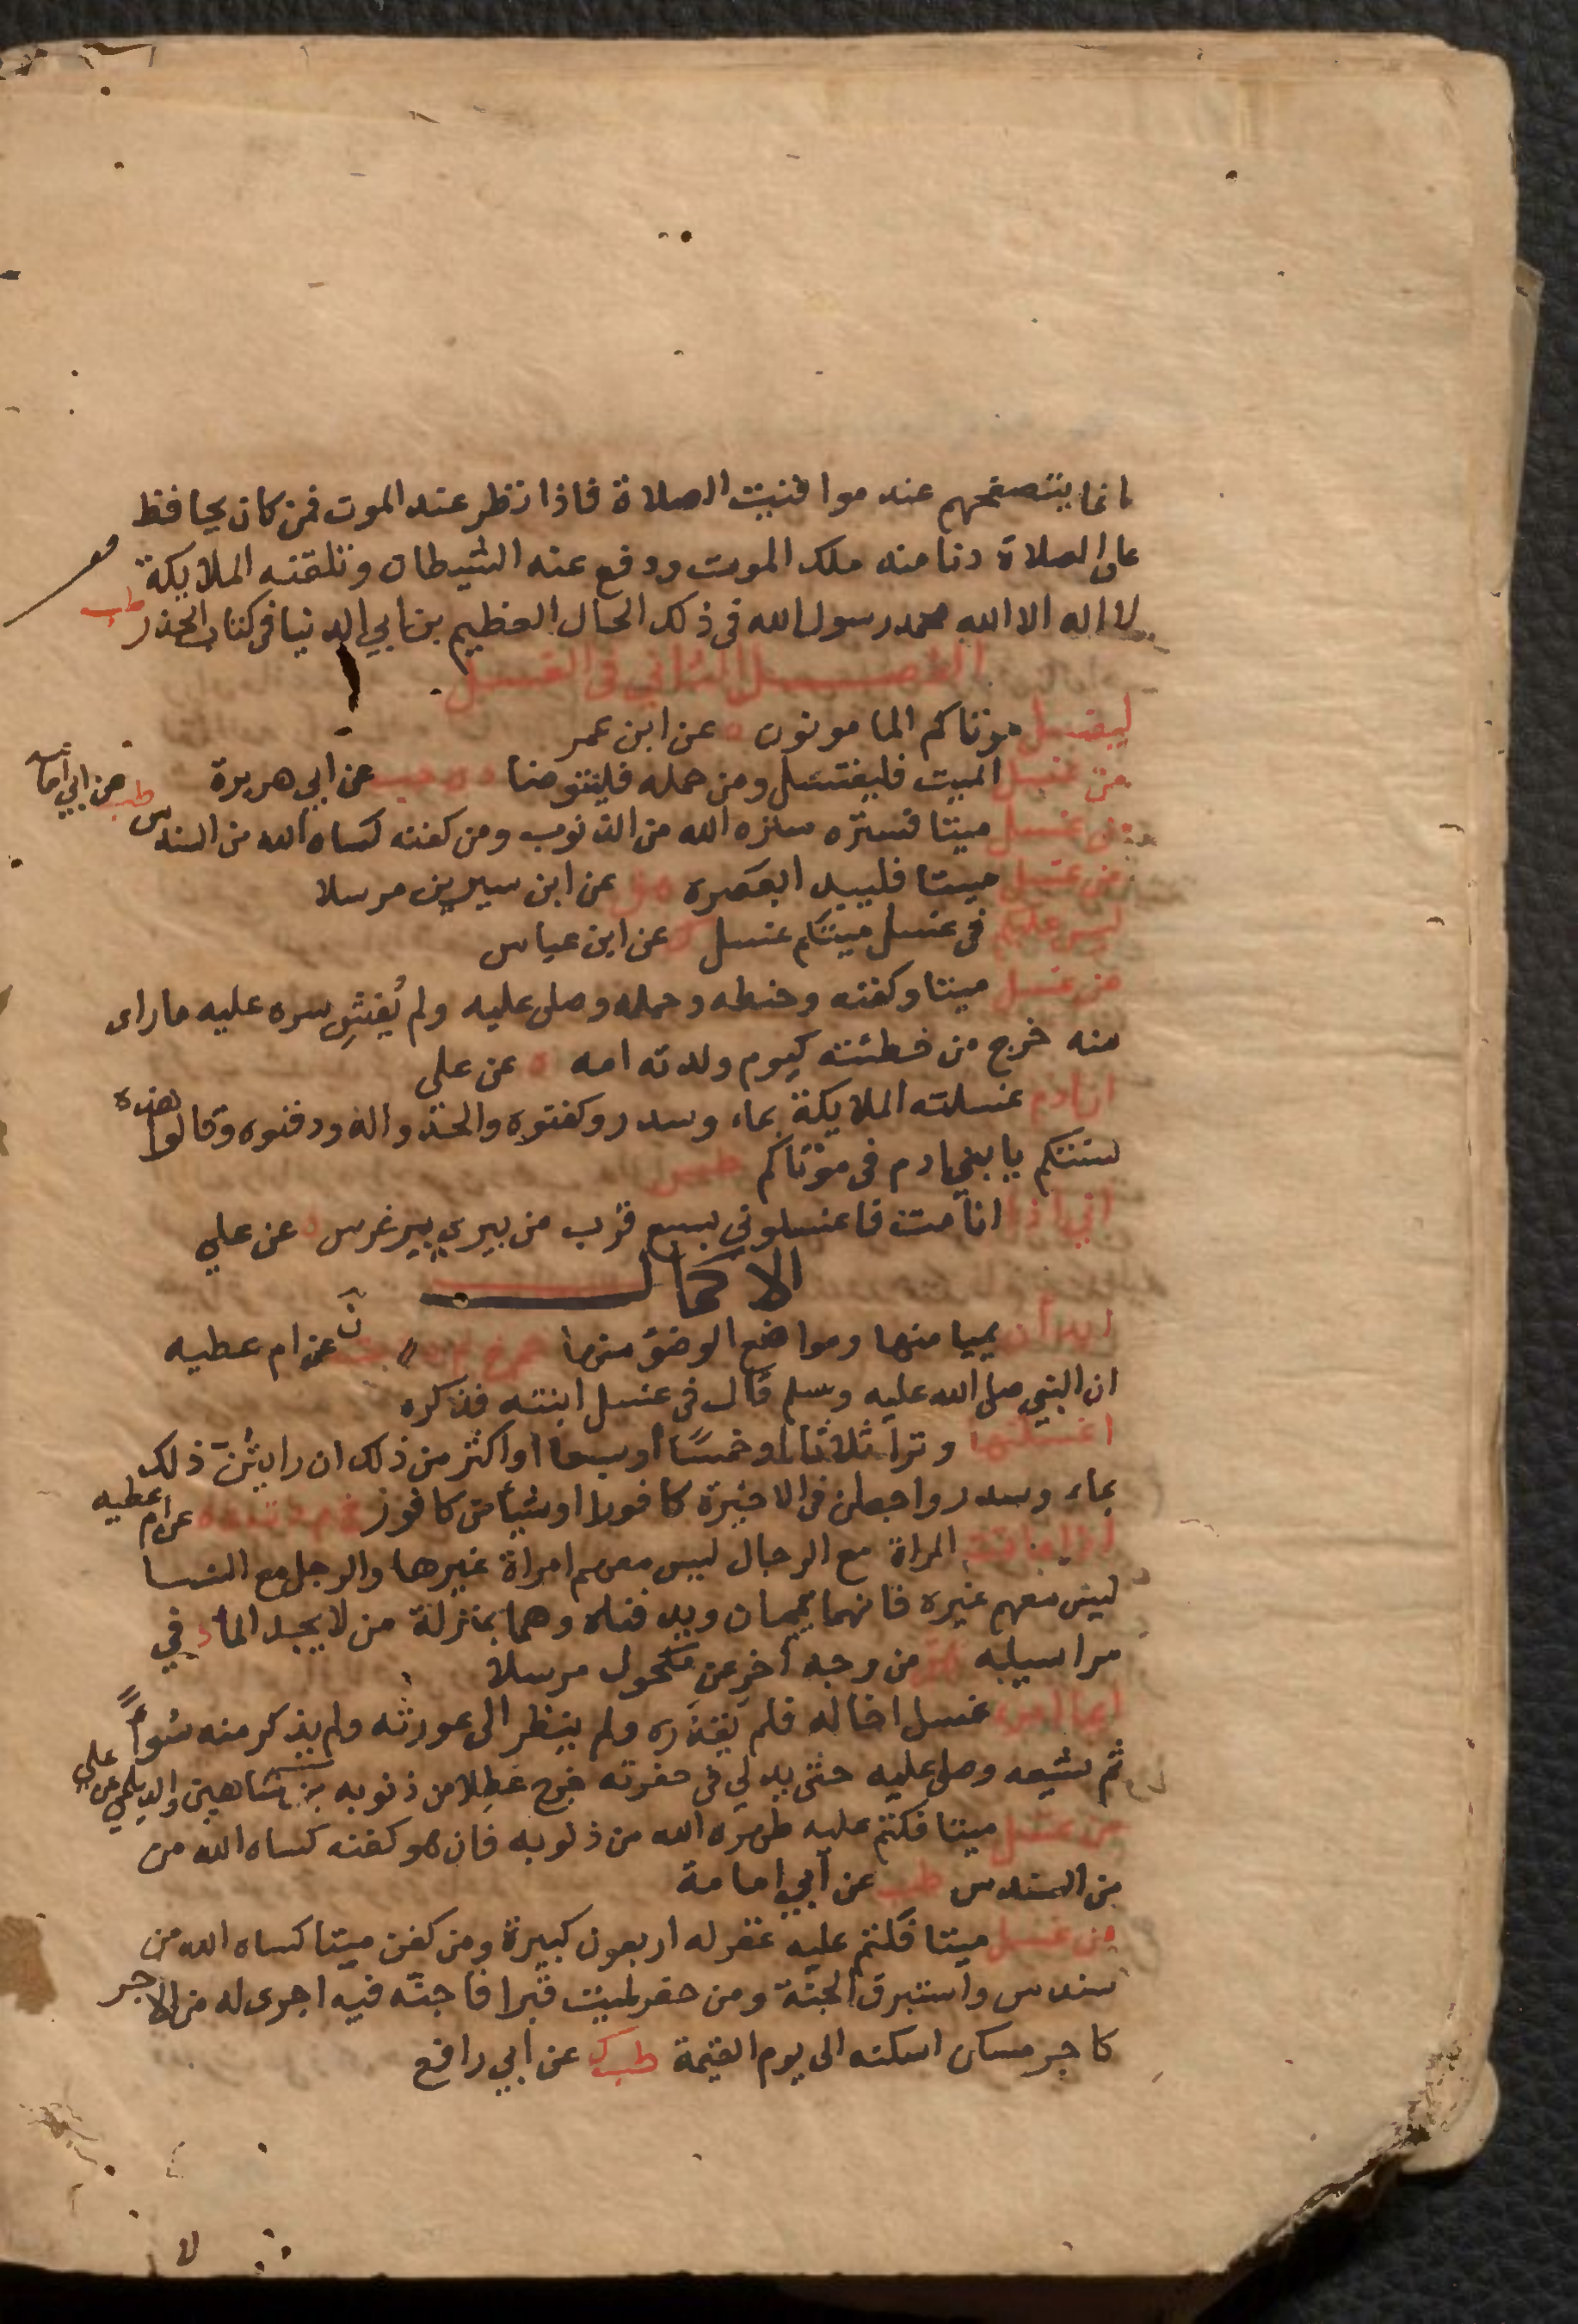 انما يتصفحهم عند مواقيت الصلاة فاذا نظر عند الموت فمن كان يحافظ
على الصلاة دنا منه ملك الموت ودفع عنه الشيطان وتلقنه الملايكة
لا اله الا الله محمد رسول الله فى ذلك الحال العظيم بن ابي الدنيا فى كتاب الحذر طب
الفصل الثاني فى الغسل
ليغسل موتاكم المامونون ه عن ابن عمر
من غسل الميت فليغتسل ومن حمله فليتوضا د ه حب عن ابي هريرة
من غسل ميتا فستره ستره الله من الذنوب ومن كفنه كساه الله من السندس طب عن ابي امامه
من غسل ميتا فليبد ابعصره هق عن ابن سيرين مرسلا
ليس عليكم فى غسل ميتكم غسل ك عن ابن عباس
من غسل ميتا وكفنه وحنطه وحمله وصلى عليه ولم يُفشِ سره عليه ما راى
منه خرج من خطئته كيوم ولدته امه ه عن على
ان ادم غسلته الملايكة بماء وسدر وكفنوه والحدواله ودفنوه وقالوا هذه
سنتكم يا بني ادم فى موتاكم طس
اني اذا انا مت فاغسلوني بسبع قرب من بيري بير غرس ه عن علي
الاكمال
ابدان بميامنها ومواضع الوضؤ منها عن ام عطيه
ان النبي صلى الله عليه وسلم قال فى غسل ابنته فذكره
اغسلنها وترا ثلاثا او خمسًا او سبعا او اكثر من ذلك ان رايتُنّ ذلك
بماء وسدر واجعلن فى الاخيرة كافورا او شيأ من كافور عن ام عطيه
اذا ماتت المراة مع الرجال ليس معهم امراة غيرها والرجل مع النسا
ليس معهن غيره فانهما ييممان ويدفنان وهما بمنزلة من لا يجد الماء د في
مراسيله هق من وجه اخر عن مكحول مرسلا
ايما امرء غسل اخا له فلم يَقذَره ولم ينظر الى عورته ولم يذكر منه سُوأً
ثم شيعه وصلى عليه حتى يدلي فى حفرته خرج عَطِلا من ذنوبه بن شاهين والديلمي عن علي
من غسل ميتا فكتم عليه طهره الله من ذنوبه فان هو كفنه كساه الله من
من السندس طب عن ابي امامة
من غسل ميتا فكتم عليه غفر له اربعون كبيرة ومن كفن ميتا كساه الله من
سندس واستبرق الجنة ومن حفر لميت قبرا فاجنّه فيه اجرى له من الاجر
كاجر مسكن اسكنه الى يوم القيمة طب ك عن ابي رافع